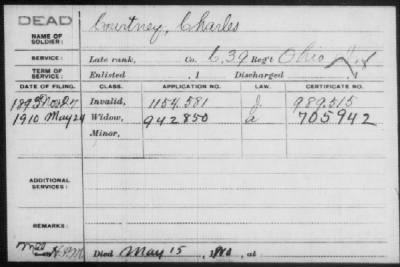 DEAD
NAME OF SOLDIER: Courtney, Charles
SERVICE: Late rank, Co. C. 39 Reg't Ohio Inf
TERM OF SERVICE: Enlisted , 1 Discharged
DATE OF FILING. CLASS. APPLICATION NO. LAW. CERTIFICATE NO.
1893 Nov 27 Invalid, 1154.581 J 989.515
1910 May 24 Widow, 942850 a 705942
Minor,
ADDITIONAL SERVICES:
REMARKS:
Died May 15, 1910, at